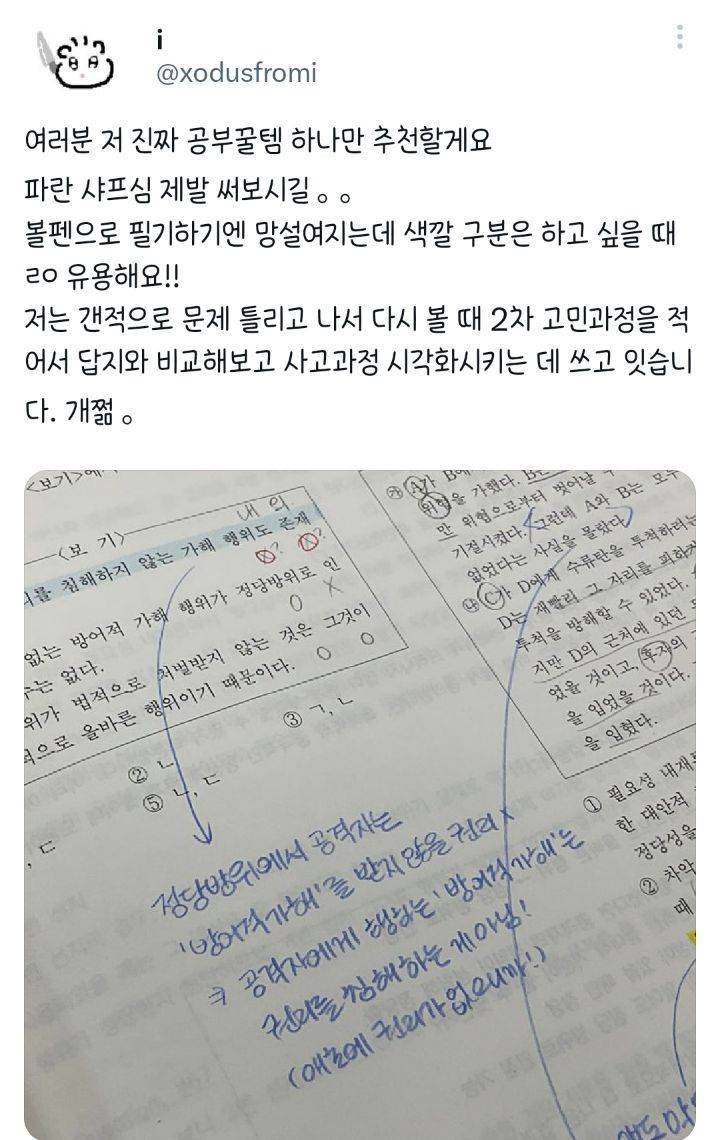 i
@xodusfromi
여러분 저 진짜 공부꿀템 하나만 추천할게요
파란 샤프심 제발 써보시길 。。
볼펜으로 필기하기엔 망설여지는데 색깔 구분은 하고 싶을 때
ㄹㅇ 유용해요!!
저는 갠적으로 문제 틀리고 나서 다시 볼 때 2차 고민과정을 적
어서 답지와 비교해보고 사고과정 시각화시키는 데 쓰고 잇습니
다. 개쩖 。
<보기>에
<보 기>
내의
리를 침해하지 않는 가해 행위도 존재
없는 방어적 가해 행위가 정당방위로 인
수는 없다.
위가 법적으로 처벌받지 않는 것은 그것이
적으로 올바른 행위이기 때문이다.
② ㄴ
③ ㄱ, ㄴ
⑤ ㄴ, ㄷ
, ㄷ
정당방위에서 공격자는
'방어적 가해'를 받지 않을 권리 x
→ 공격자에게 행하는 '방어적 가해'는
권리를 침해하는 게 아님!
(애초에 권리가 없으니까!)
㉮ A가 B에
위협을 가했다. B는
만 위험으로부터 벗어날 수
기절시켰다. 그런데 A와 B는 모두
없었다는 사실을 몰랐다.
㉯ C가 D에게 수류탄을 투척하려는
D는 재빨리 그 자리를 피하
투척을 방해할 수 있었다.
지만 D의 근처에 있던
었을 것이고, 후자의
을 입었을 것이다.
을 입혔다.
① 필요성 내재
한 대안적
정당성을
② 차악
때